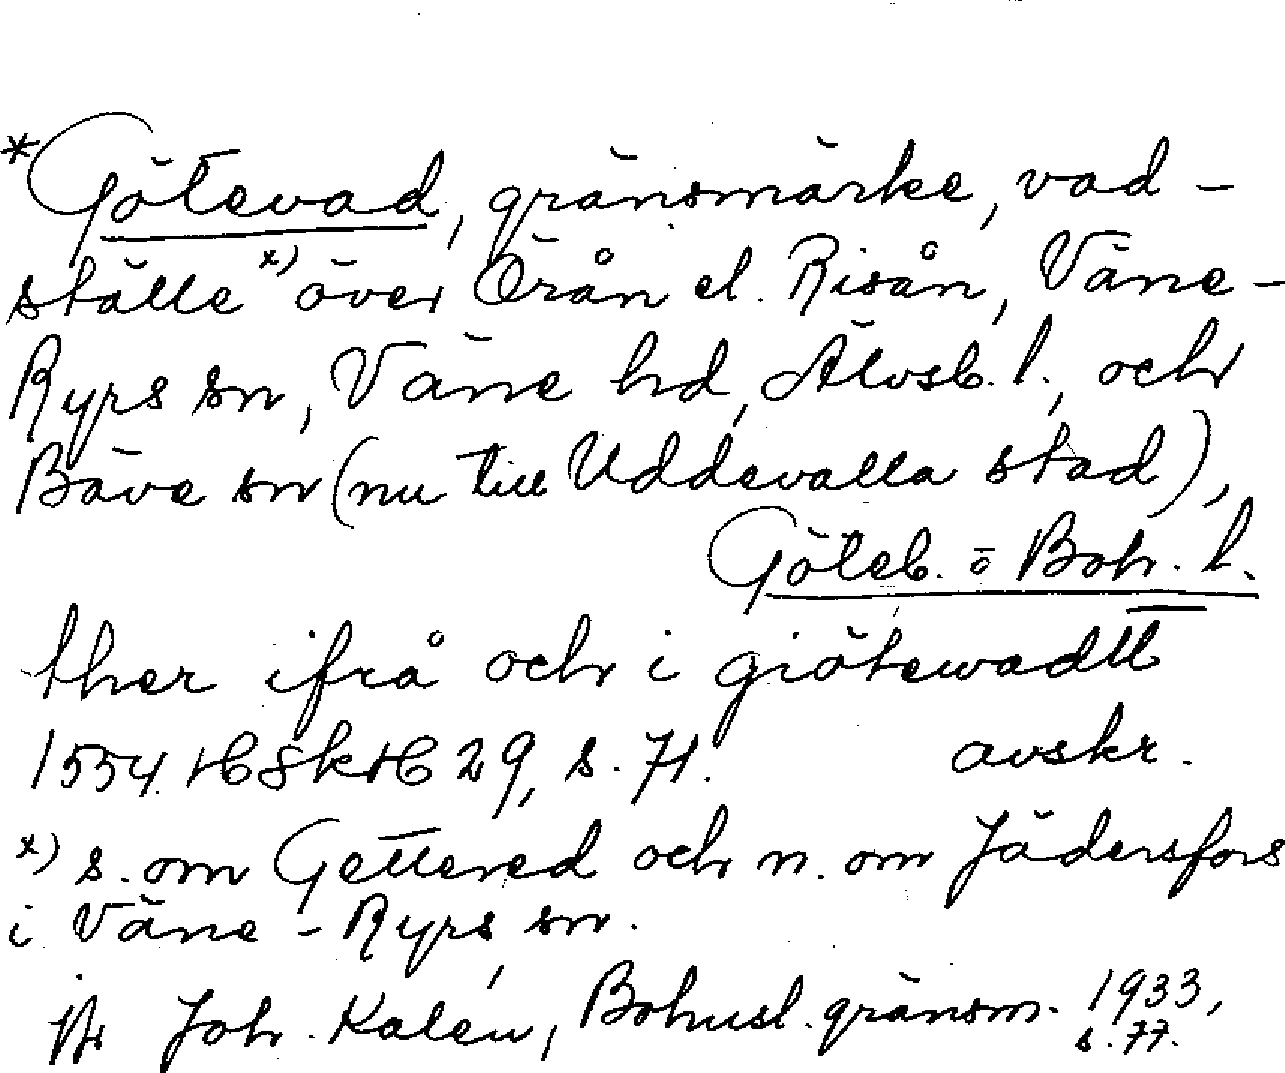 *Götevad, gränsmärke, vad-
ställe x) över Örån el. Risån, Väne-
Ryrs sn, Väne hd, Älvsb. l., och
Bäve sn (nu till Uddevalla stad),
Göteb. o Boh. l.
ther ifrå och i giötewadtt
1554. HSH 29, s. 71. avskr.
x) s. om Gettered och n. om Jädersfors
i Väne-Ryrs sn.
jfr Joh. Kalén, Bohusl. gränsm. 1933,
s. 77.